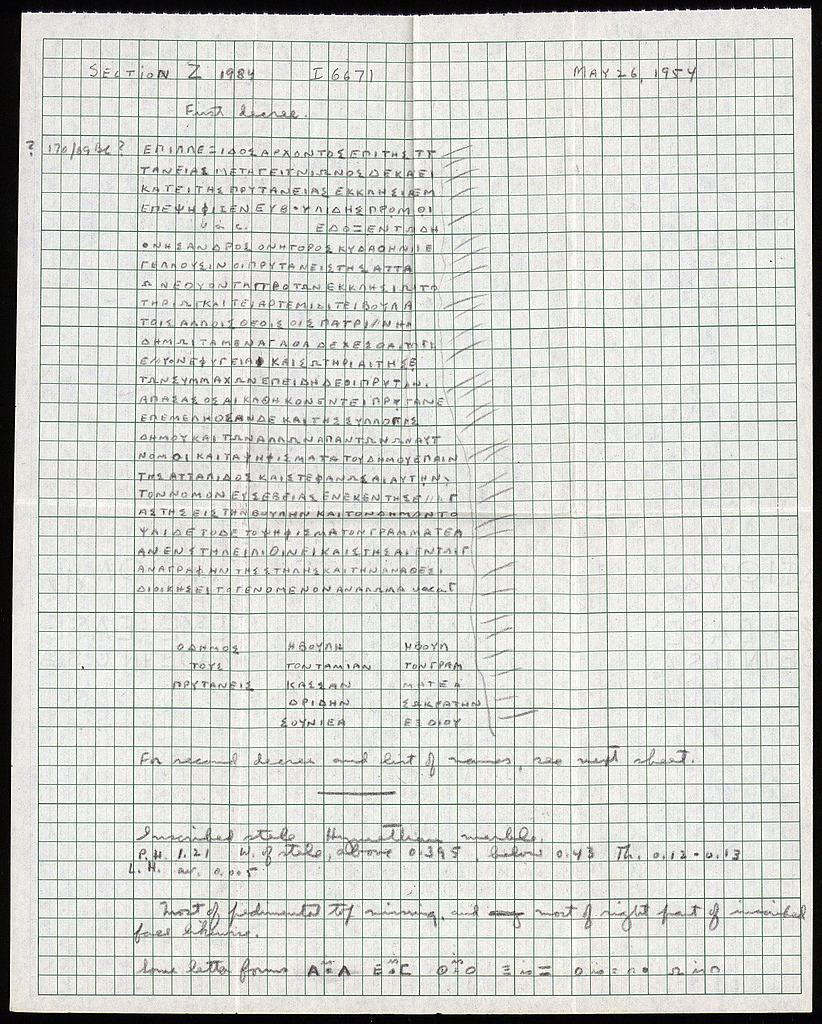 SECTION Z 1984 I 6671 MAY 26, 1954
First decree.
? 170/69 BC? ΕΠΙΑΛΕΞΙΔΟΣΑΡΧΟΝΤΟΣΕΠΙΤΗΣ
ΤΑΝΕΙΑΣΜΕΤΑΓΕΙΤΝΙΩΝΟΣΔΕΚΑ
ΚΑΤΕΙΤΗΣΠΡΥΤΑΝΕΙΑΣΕΚΚΛΗΣΙΑΕΜ
ΕΠΕΨΗΦΙΣΕΝΕΥΒΟΥΛΙΔΗΣ
vac. ΕΔΟΞΕΝΤΩΔΗ
ΟΝΗΣΑΝΔΡΟΣΟΝΗΤΟΡΟΣΚΥΔΑΘΗΝΙΕ
ΓΕΛΛΟΥΣΙΝΟΙΠΡΥΤΑΝΕΙΣΤΗΣΑΤΤΑ
ΩΝΕΘΥΟΝΤΑΠΡΟΤΩΝΕΚΚΛΗΣΙΩΝΤΟ
ΤΗΡΙΩΙΚΑΙΤΕΙΑΡΤΕΜΙΔΙΤΕΙΒΟΥΛΑ
ΤΟΙΣΑΛΛΟΙΣΘΕΟΙΣΟΙΣΠΑΤΡΙ
ΔΗΜΩΙΤΑΜΕΝΑΓΑΘΑΔΕΧΕΣΘΑΙ
ΚΑΙΣΩΤΗΡΙΑΙΤΗΣΒ
ΤΩΝΣΥΜΜΑΧΩΝΕΠΕΙΔΗΔΕΟΙΠΡΥΤΑΝ
ΑΠΑΣΑΣΟΣΑΙΚΑΘΗΚΟΝΕΝΤΕΙΠΡΥΤΑΝΕ
ΕΠΕΜΕΛΗΘΣΑΝΔΕΚΑΙΤΗΣΣΥΛΛΟΓΗΣ
ΔΗΜΟΥΚΑΙΤΩΝΑΛΛΩΝΑΠΑΝΤΩΝΩΝΑΥΤ
ΝΟΜΟΙΚΑΙΤΑΨΗΦΙΣΜΑΤΑΤΟΥΔΗΜΟΥΕΠΑΙΝ
ΤΗΣΑΤΤΑΛΙΔΟΣΚΑΙΣΤΕΦΑΝΩΣΑΙΑΥΤΗΝ
ΤΟΝΝΟΜΟΝΕΥΣΕΒΕΙΑΣΕΝΕΚΕΝΤΗΣΕ
ΑΣΤΗΣΕΙΣΤΗΝΒΟΥΛΗΝΚΑΙΤΟΝΔΗΜΟΝΤΟ
ΨΑΙΔΕΤΟΔΕΤΟΨΗΦΙΣΜΑΤΟΝΓΡΑΜΜΑΤΕΑ
ΑΝΕΝΣΤΗΛΕΙΛΙΘΙΝΕΙΚΑΙΣΤΗΣΑΙΕΝΤΩΙΓ
ΑΝΑΓΡΑΦΗΝΤΗΣΣΤΗΛΗΣΚΑΙΤΗΝΑΝΑΘΕΣΙ
ΔΙΟΙΚΗΣΕΙΤΟΓΕΝΟΜΕΝΟΝΑΝΑΛΩΜΑ vacat
ΟΔΗΜΟΣ ΗΒΟΥΛΗ ΗΒΟΥΛ
ΤΟΥΣ ΤΟΝΤΑΜΙΑΝ ΤΟΝΓΡΑΜ
ΠΡΥΤΑΝΕΙΣ ΚΑΣΣΑΝ ΜΑΤΕΑ
ΔΡΙΔΗΝ ΣΩΚΡΑΤΗΝ
ΣΟΥΝΙΕΑ ΕΞΟΙΟΥ
For second decree and list of names, see next sheet.
Inscribed stele Hymettian marble.
P.H. 1.21 W. of stele, above 0.395, below 0.43 Th. 0.12-0.13
L.H. av. 0.005
Most of pedimental top missing, and most of right part of inscribed
face likewise.
Some letter forms